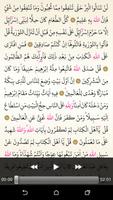 لَن تَنَالُوا۟ ٱلْبِرَّ حَتَّىٰ تُنفِقُوا۟ مِمَّا تُحِبُّونَ وَمَا تُنفِقُوا۟ مِن شَىْءٍ
فَإِنَّ ٱللَّهَ بِهِۦ عَلِيمٌ كُلُّ ٱلطَّعَامِ كَانَ حِلًّا لِّبَنِىٓ إِسْرَٰٓءِيلَ
إِلَّا مَا حَرَّمَ إِسْرَٰٓءِيلُ عَلَىٰ نَفْسِهِۦ مِن قَبْلِ أَن تُنَزَّلَ ٱلتَّوْرَىٰةُ
قُلْ فَأْتُوا۟ بِٱلتَّوْرَىٰةِ فَٱتْلُوهَآ إِن كُنتُمْ صَٰدِقِينَ فَمَنِ ٱفْتَرَىٰ
عَلَى ٱللَّهِ ٱلْكَذِبَ مِنۢ بَعْدِ ذَٰلِكَ فَأُو۟لَٰٓئِكَ هُمُ ٱلظَّٰلِمُونَ
قُلْ صَدَقَ ٱللَّهُ فَٱتَّبِعُوا۟ مِلَّةَ إِبْرَٰهِيمَ حَنِيفًا وَمَا كَانَ مِنَ
ٱلْمُشْرِكِينَ إِنَّ أَوَّلَ بَيْتٍ وُضِعَ لِلنَّاسِ لَلَّذِى بِبَكَّةَ
مُبَارَكًا وَهُدًى لِّلْعَٰلَمِينَ فِيهِ ءَايَٰتٌۢ بَيِّنَٰتٌ مَّقَامُ إِبْرَٰهِيمَ
وَمَن دَخَلَهُۥ كَانَ ءَامِنًا وَلِلَّهِ عَلَى ٱلنَّاسِ حِجُّ ٱلْبَيْتِ مَنِ
ٱسْتَطَاعَ إِلَيْهِ سَبِيلًا وَمَن كَفَرَ فَإِنَّ ٱللَّهَ غَنِىٌّ عَنِ ٱلْعَٰلَمِينَ
قُلْ يَٰٓأَهْلَ ٱلْكِتَٰبِ لِمَ تَكْفُرُونَ بِـَٔايَٰتِ ٱللَّهِ وَٱللَّهُ شَهِيدٌ
00:00
02:01